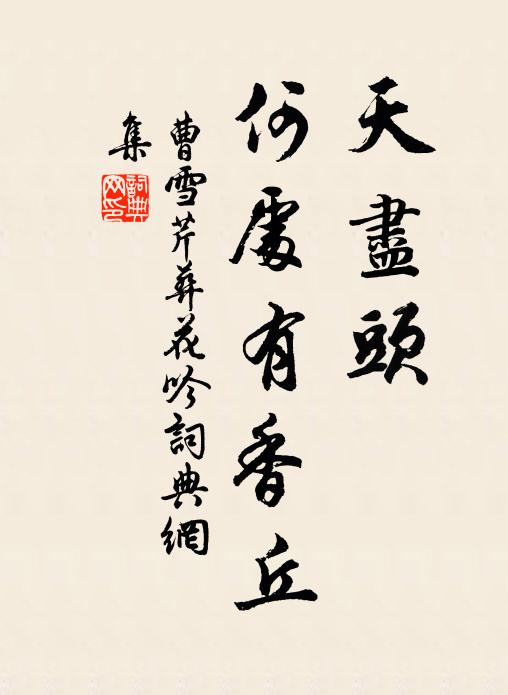 天盡頭
何處有香丘
曹雪芹葬花吟詞典網
集
詞典
网印